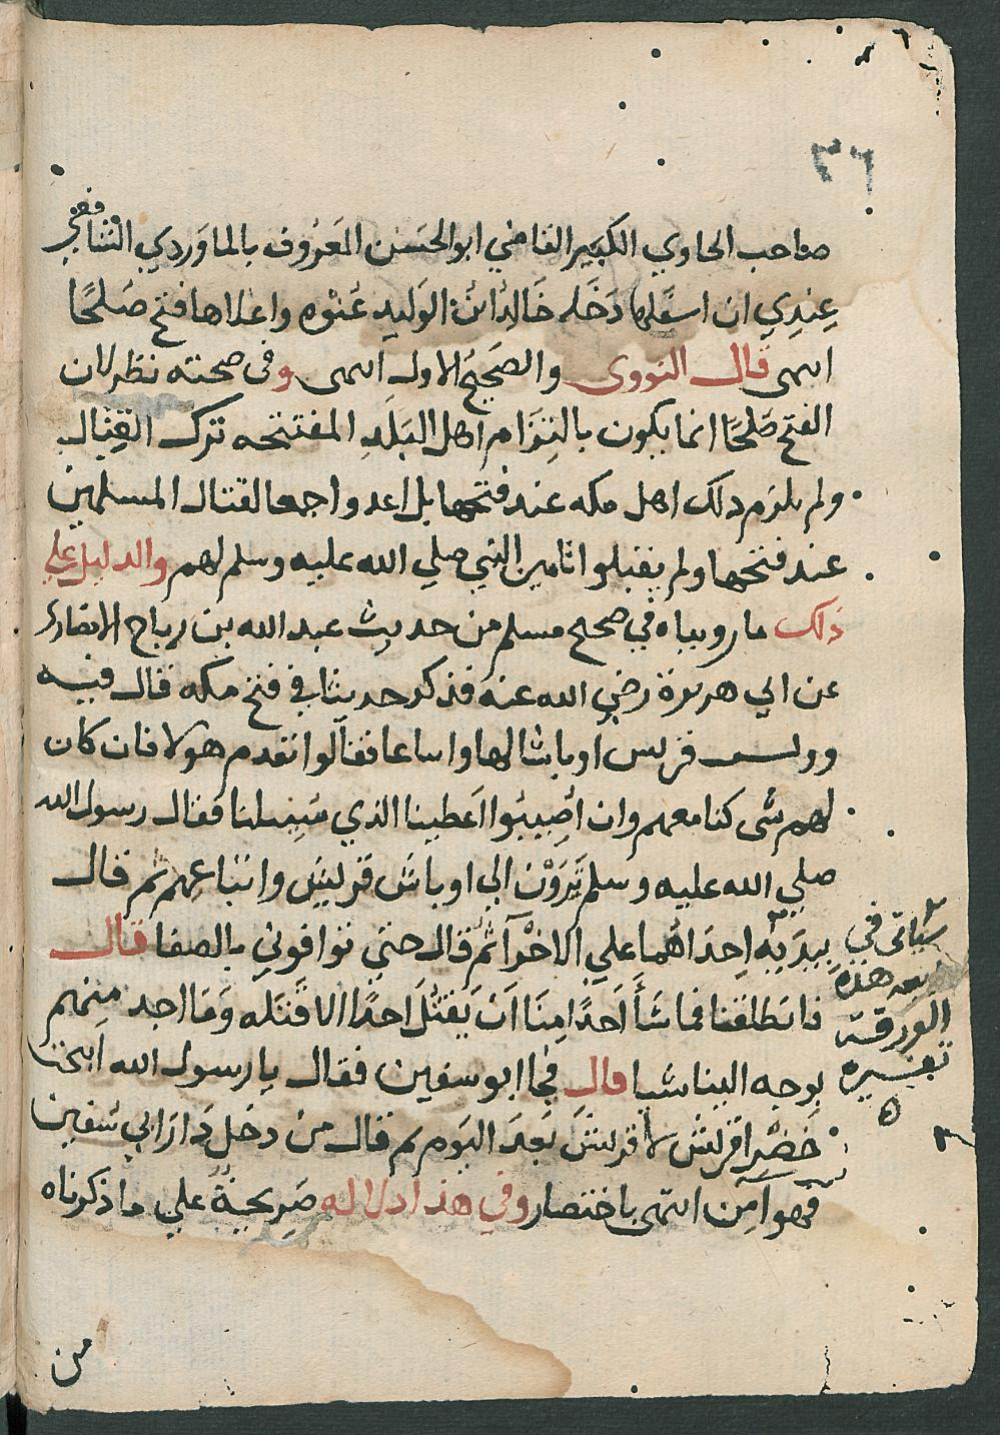 صاحب الحاوي الكبير القاضي ابو الحسن المعروف بالماوردي الشافعي
عندي ان اسفلها دخله خالد ابن الوليد عنوه واعلاها فتح صلحًا
انتهى قال النووى والصحيح الاول انتهى وفى صحته نظر لان
الفتح صلحًا انما يكون بالتزام اهل البلد المفتتحه ترك القتال
ولم يلزم ذلك اهل مكه عند فتحها بل اعدوا جمعا لقتال المسلمين
عند فتحها ولم يقبلوا تامين النبي صلي الله عليه وسلم لهم والدليل علي
ذلك ما رويناه في صحيح مسلم من حديث عبد الله بن رباح الانصاري
عن ابي هريرة رضي الله عنه فذكر حديثا في فتح مكه قال فيه
ووبشت قريش اوباشا لها واتباعا فقالوا نقدم هولا فان كان
لهم شى كنا معهم وان اصيبوا اعطينا الذي سئلنا فقال رسول الله
صلي الله عليه وسلم ترون الي اوباش قريش واتباعهم ثم قال
بيديه احداهما علي الاخرآ ثم قال حتي توافوني بالصفا قال
فانطلقنا فما شأ احدًا منا ان يقتل احدًا الا قتله وما احد منهم
يوجه الينا شيا قال فجا ابو سفين فقال يا رسول الله ابيحت
خضرا قريش لا قريش بعد اليوم ثم قال من دخل دار ابي سفين
فهو آمن انتهى باختصار وفي هذا دلاله صريحة علي ما ذكرناه
من
سياتى في
هذه
الورقة
تفسيره